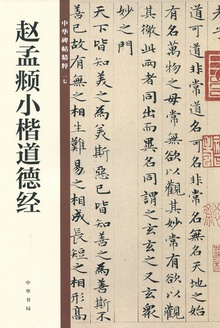 中华碑帖精粹
赵孟𫖯小楷道德经
中华书局
道可道非常道名可名非常名無名天地之始
有名萬物之母常無欲以觀其妙常有欲以觀
其徼此兩者同出而異名同謂之玄玄之又玄衆
妙之門
天下皆知美之為美斯惡已皆知善之為善斯不
善已故有無之相生難易之相成長短之相形高